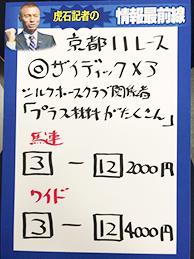 虎石記者の
情報最前線
京都11レース
◎ザイディックメア
シルクホースクラブ関係者
「プラス材料がたくさん」
馬連
3－12 2000円
ワイド
3－12 4000円